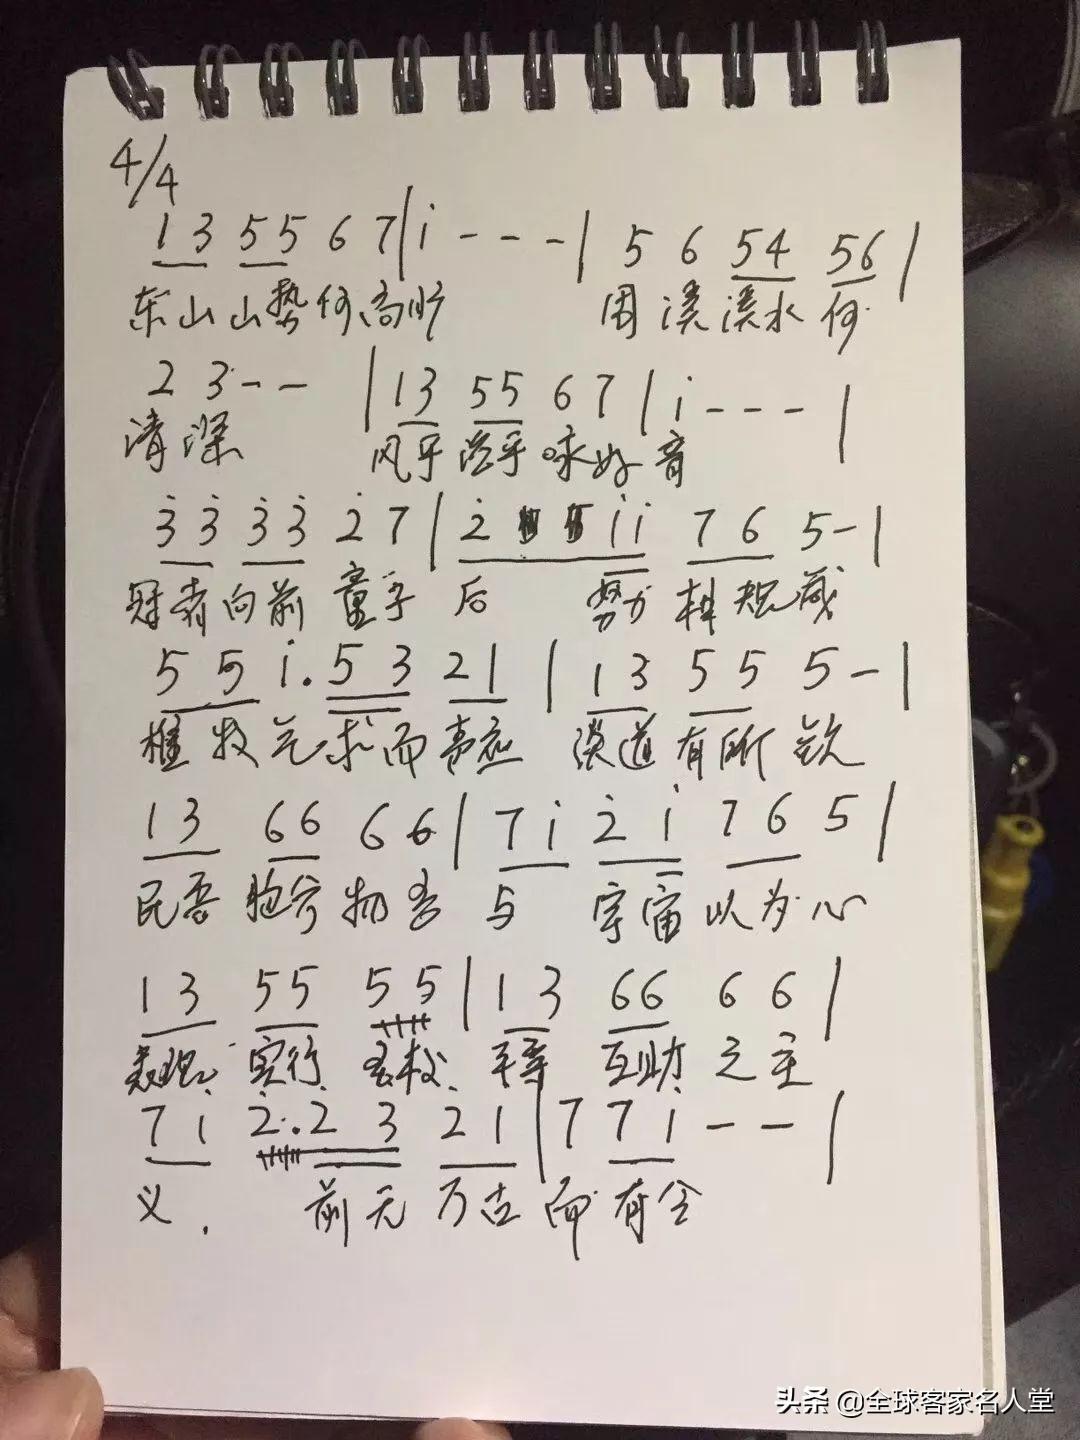 4/4
1 3 5 5 6 7 | i - - - | 5 6 5 4 5 6 |
东山山势何高 周溪溪水何
2 3 - - | 1 3 5 5 6 7 | i - - - |
清深 风乎 乎咏好音
3̇ 3̇ 3̇ 3̇ 2̇ 7 | 2̇ i i 7 6 5 - |
冠者向前童子后 努力 规箴
5 5 i . 5 3 2 1 | 1 3 5 5 5 - |
求而 应 道有所钦
1 3 6 6 6 6 | 7 i 2̇ i 7 6 5 |
民吾胞兮物吾与 宇宙以为心
1 3 5 5 5 5 | 1 3 6 6 6 6 |
实行 校、平等 互助之主
7 i 2̇ . 2 3 2 1 | 7 7 i - - |
义. 前无万古而有今
头条 @全球客家名人堂